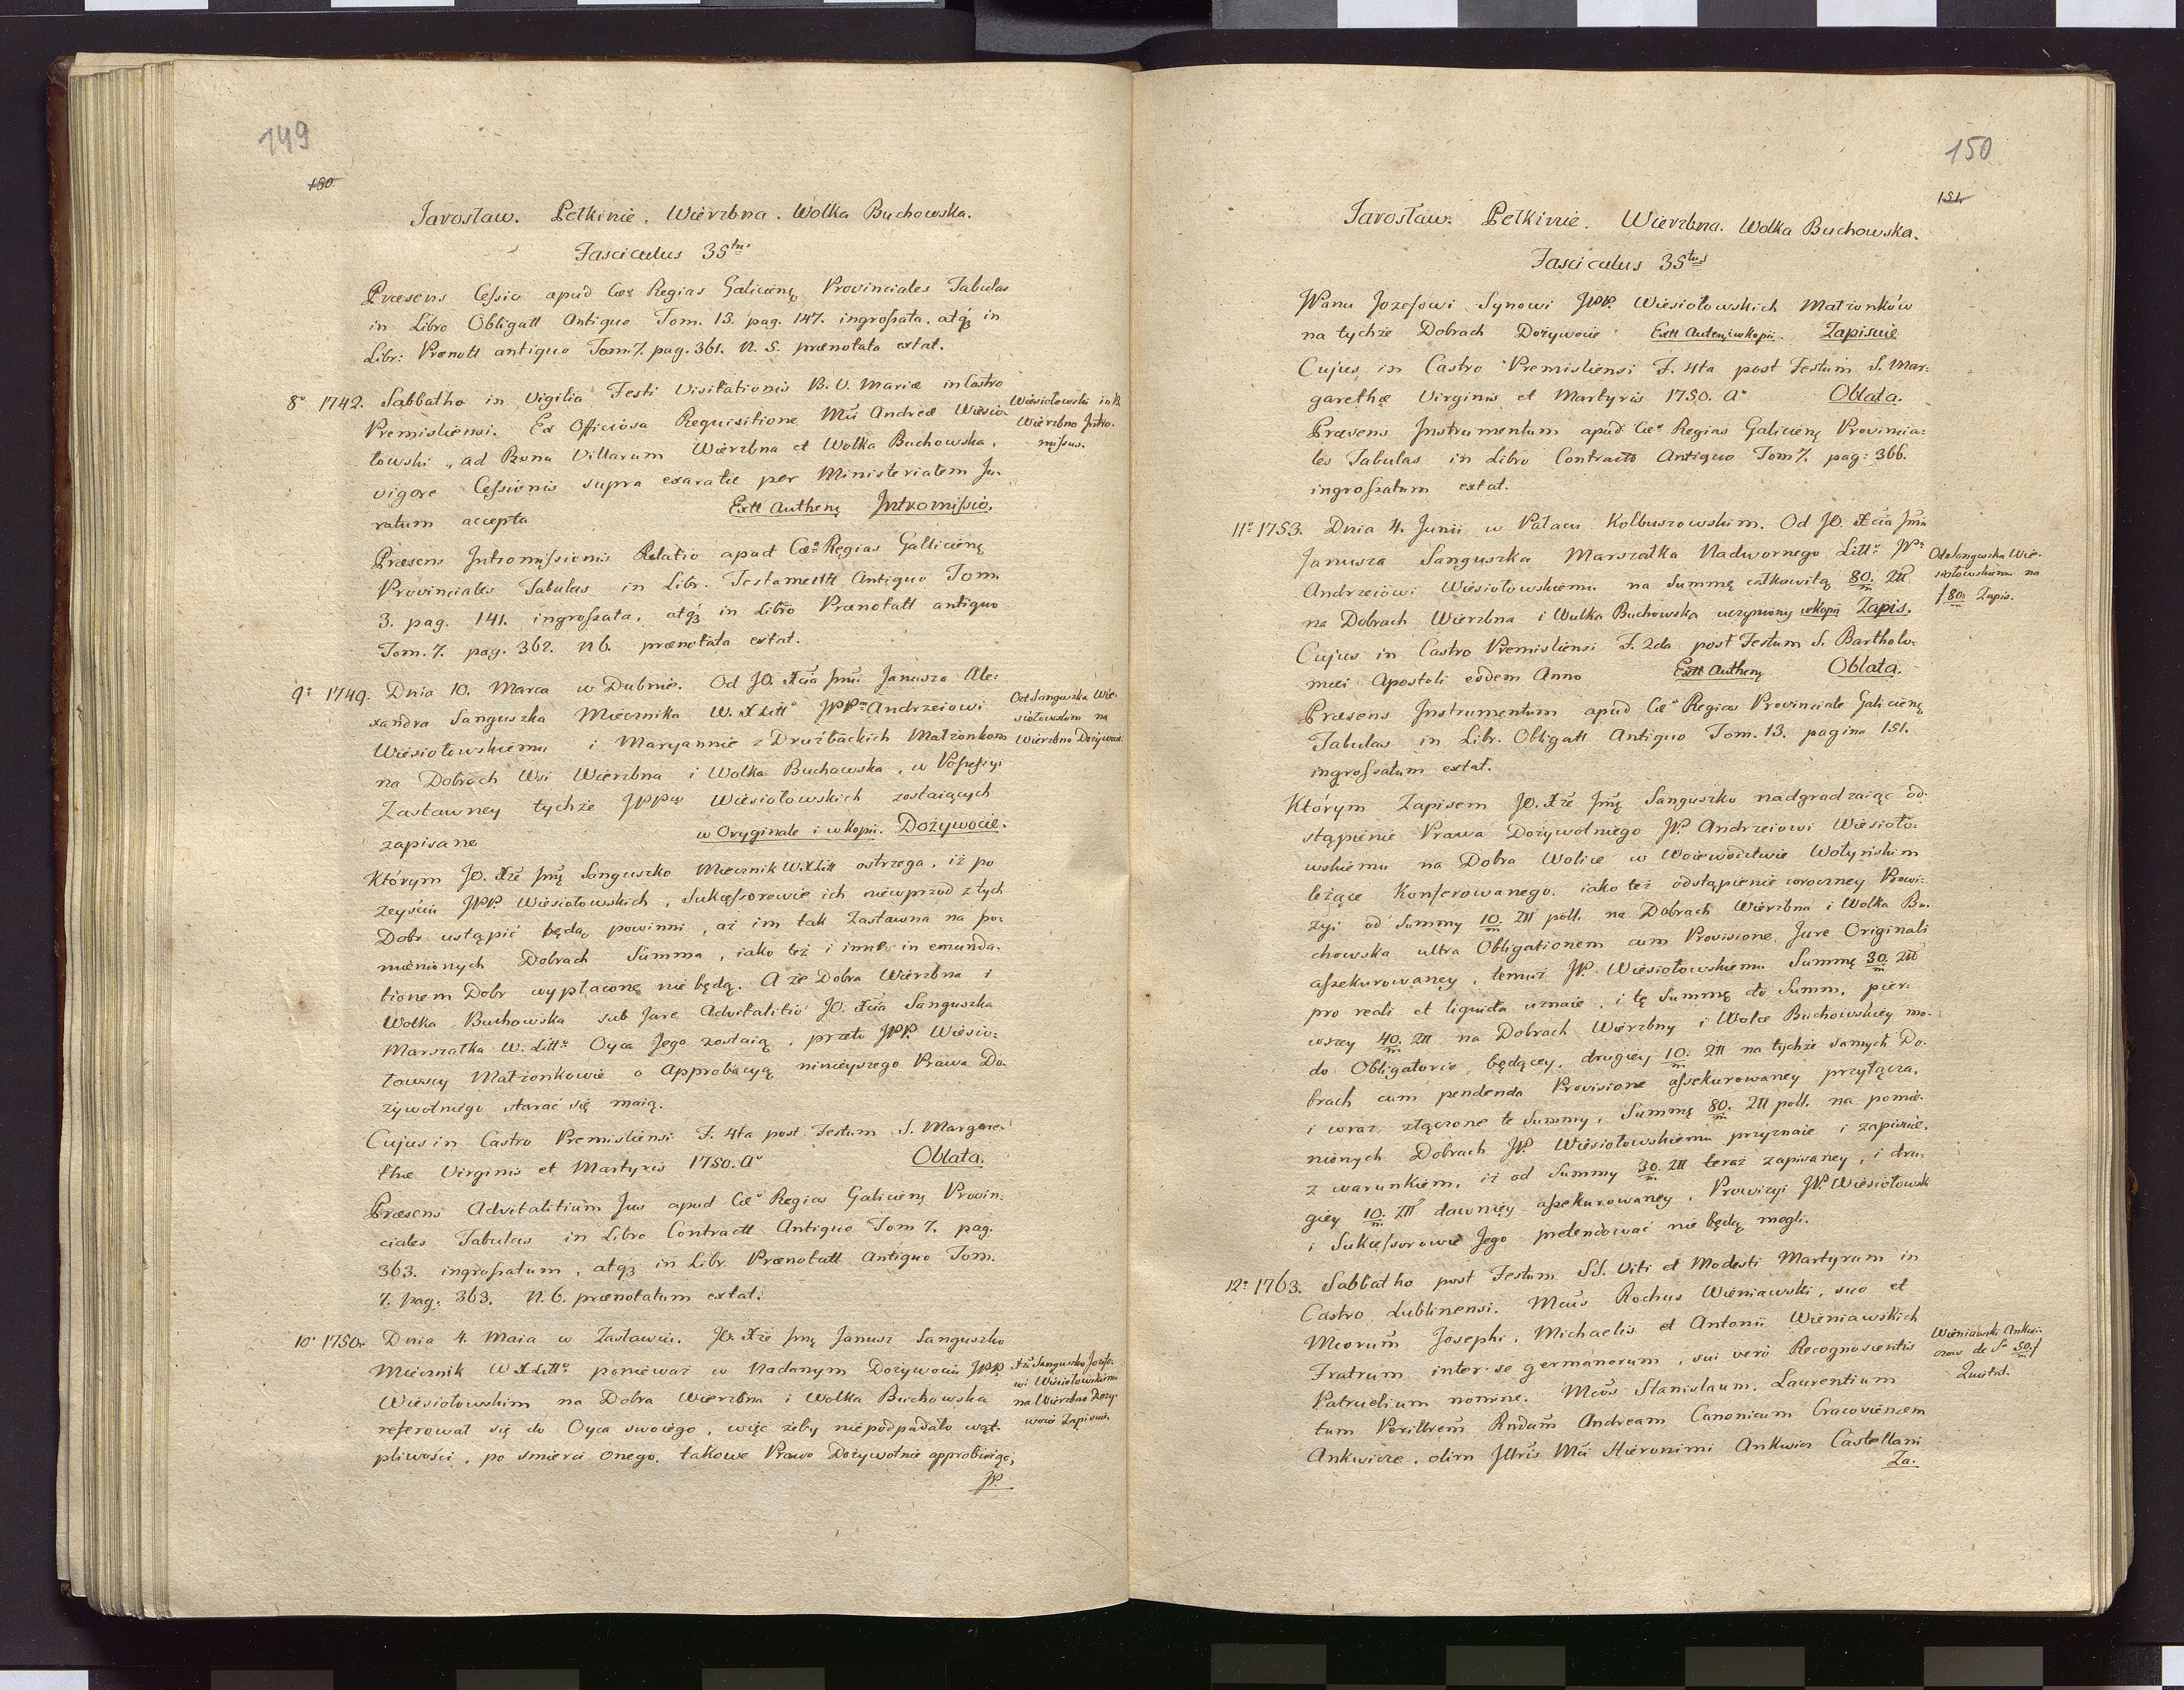 149
150.
Jarosław. Pełkinie. Wierzbna. Wolka Buchowska.
Fasciculus 35tus
Præsens Cessio apud Cæs Regias Galicienę Provinciales Tabulas
in Libro Obligatt Antiquo Tom. 13. pag. 147. ingrossata, atqz in
Libr: Prenott antiquo Tom 7. pag. 361. N. 5. prænotata extat.
8º 1742. Sabbatho in Vigilia Festi Visitationis B. V. Mariæ in Castro
Premisliensi. Ex Officiosa Requisitione Mci Andreæ Wiesio-
łowski, ad Bona Villarum Wierzbna et Wolka Buchowska,
vigore Cessionis supra exaratæ per Ministerialem Ju-
ratum accepta Extt Authenę Intromissio.
Wiesiołowski in B.
Wierzbno Intro-
missus.
Præsens Intromissionis Relatio apud Cæs Regias Gallicienę
Provinciales Tabulas in Libr. Testamentt Antiquo Tom.
3. pag. 141. ingrossata, atqz in Libro Prænotatt antiquo
Tom. 7. pag. 362. N 6. prænotata extat.
9º 1749. Dnia 10. Marca w Dubnie. Od JO. Xcia Jmci Janusza Ale-
xandra Sanguszka Miecznika W. X Litto JPPm Andrzeiowi
Wiesiołowskiemu i Maryannie z Drużbackich Matżonkom
na Dobrach Wsi Wierzbna i Wolka Buchowska, w Possessyi
Zastawney tychże JPPw Wiesiołowskich zostaiących
zapisane w Oryginale i w kopii. Dożywocie.
Od Sanguszka Wie-
siołowskim na
Wierzbno Dożywoc.
Którym JO. Xże Jmę Sanguszko Miecznik W.XLitt ostrzega, iż po
zeyściu JPP. Wiesiołowskich, Sukcessorowie ich niewprzod z tych
Dobr ustąpić będą powinni, aż im tak Zastawna na po-
mienionych Dobrach Summa, iako też i inne in emunda-
tionem Dobr wypłacone nie będą. A że Dobra Wierzbna i
Wolka Buchowska sub Jure Advitalitio JO. Xcia Sanguszka
Marszałka W. Litto Oyca Jego zostaią, przeto JPP. Wiesio-
łowscy Matżonkowie o Approbacyą ninieyszego Prawa Do-
żywotniego starać się maią.
Cujus in Castro Premisliensi F. 4ta post Festum S. Margare-
thæ Virginis et Martyris 1750. Aº Oblata.
Præsens Advitalitium Jus apud Cæs Regias Galicienę Provin-
ciales Tabulas in Libro Contractt Antiquo Tom 7. pag.
363. ingrossatum, atqz in Libr. Prænotatt Antiquo Tom.
7. pag. 363. N. 6. prænotatum extat.
10º 1750. Dnia 4. Maia w Zasławiu. JO. Xże Jmę Janusz Sanguszko
Miecznik W X Litto ponieważ w Nadanym Dożywociu JPP.
Wiesiołowskim na Dobra Wierzbna i Wolka Buchowska
referował się do Oyca swoiego, więc żeby niepodpadało wąt-
pliwości, po smierci onego, takowe Prawo Dożywotnie approbuiąc,
JP.
Xże Sanguszko Jozefo-
wi Wiesiołowskiemu
na Wierzbno Doży-
wocie Zapisuie.
150
151.
Jarosław. Pełkinie. Wierzbna. Wolka Buchowska.
Fasciculus 35tus
JPanu Jozefowi Synowi JPP. Wiesiołowskich Matżonków
na tychże Dobrach Dożywocie Extt Autenę w kopii. Zapisuie
Cujus in Castro Premisliensi F. 4ta post Festum S. Mar-
garethæ Virginis et Martyris 1750. Aº Oblata.
Præsens Instrumentum apud Cæs Regias Galicienę Provincia-
les Tabulas in Libro Contractt Antiquo Tom 7. pag: 366.
ingrossatum extat.
11º 1753. Dnia 4. Junii w Pałacu Kolbuszowskim. Od JO. Xcia Jmci
Janusza Sanguszka Marszałka Nadwornego Litto JPu
Andrzeiowi Wiesiołowskiemu na Summę całkowitą 80/m Złł
na Dobrach Wierzbna i Wulka Buchowska uczyniony w kopii Zapis.
Od Sanguszka Wie-
siołowskiemu na
f 80/m Zapis.
Cujus in Castro Premisliensi F. 2da post Festum S. Bartholo-
mæi Apostoli eodem Anno Extt Authenę Oblata.
Præsens Instrumentum apud Cæs Regias Provinciale Galicienę
Tabulas in Libr. Obligatt Antiquo Tom. 13. pagina 151.
ingrossatum extat.
Którym Zapisem JO. Xże Jmę Sanguszko nadgradzaiąc od-
stąpienie Prawa Dożywotniego JP. Andrzeiowi Wiesioło-
wskiemu na Dobra Wolice w Woiewodztwie Wołyńskim
leżące Konferowanego, iako też odstąpienie corocznej Prowi-
zyi od Summy 10/m Złł poll. na Dobrach Wierzbna i Wolka Bu-
chowska ultra Obligationem cum Provisione Jure Originali
assekurowaney, temuż JP. Wiesiołowskiemu Summę 30/m Złł
pro reali et liquida uznaie, i tę Summę do Summ, pier-
wszey 40/m Złł na Dobrach Wierzbny i Wolce Buchowskiey mo-
do Obligatorio będącey, drugiey 10/m Złł na tychże samych Do-
brach cum pendenda Provisione assekurowaney przyłącza,
i wraz złączone te Summy, Summę 80/m Złł poll. na pomie-
nionych Dobrach JP. Wiesiołowskiemu przyznaie i zapisuie,
z warunkiem, iż od Summy 30/m Złł teraz zapisaney, i dru-
giey 10/m Złł dawniey assekurowaney, Prowizyi JP. Wiesiołowski
i Sukcessorowie Jego pretendować nie będą mogli.
12º 1763. Sabbatho post Festum SS. Viti et Modesti Martyrum in
Castro Lublinensi. Mcus Rochus Wieniawski, suo et
Mcorum Josephi, Michaelis et Antonii Wieniawskich
Fratrum inter se germanorum, sui vero Recognoscentis
Patruelium nomine. Mcos Stanislaum, Laurentium
tum Perillrem Rndum Andream Canonicum Cracoviensem
Ankwicze, olim Jllris Mci Hieronimi Ankwicz Castellani
Za.
Wieniawski Ankwi-
czow de Sa 50/m f
Quietat.